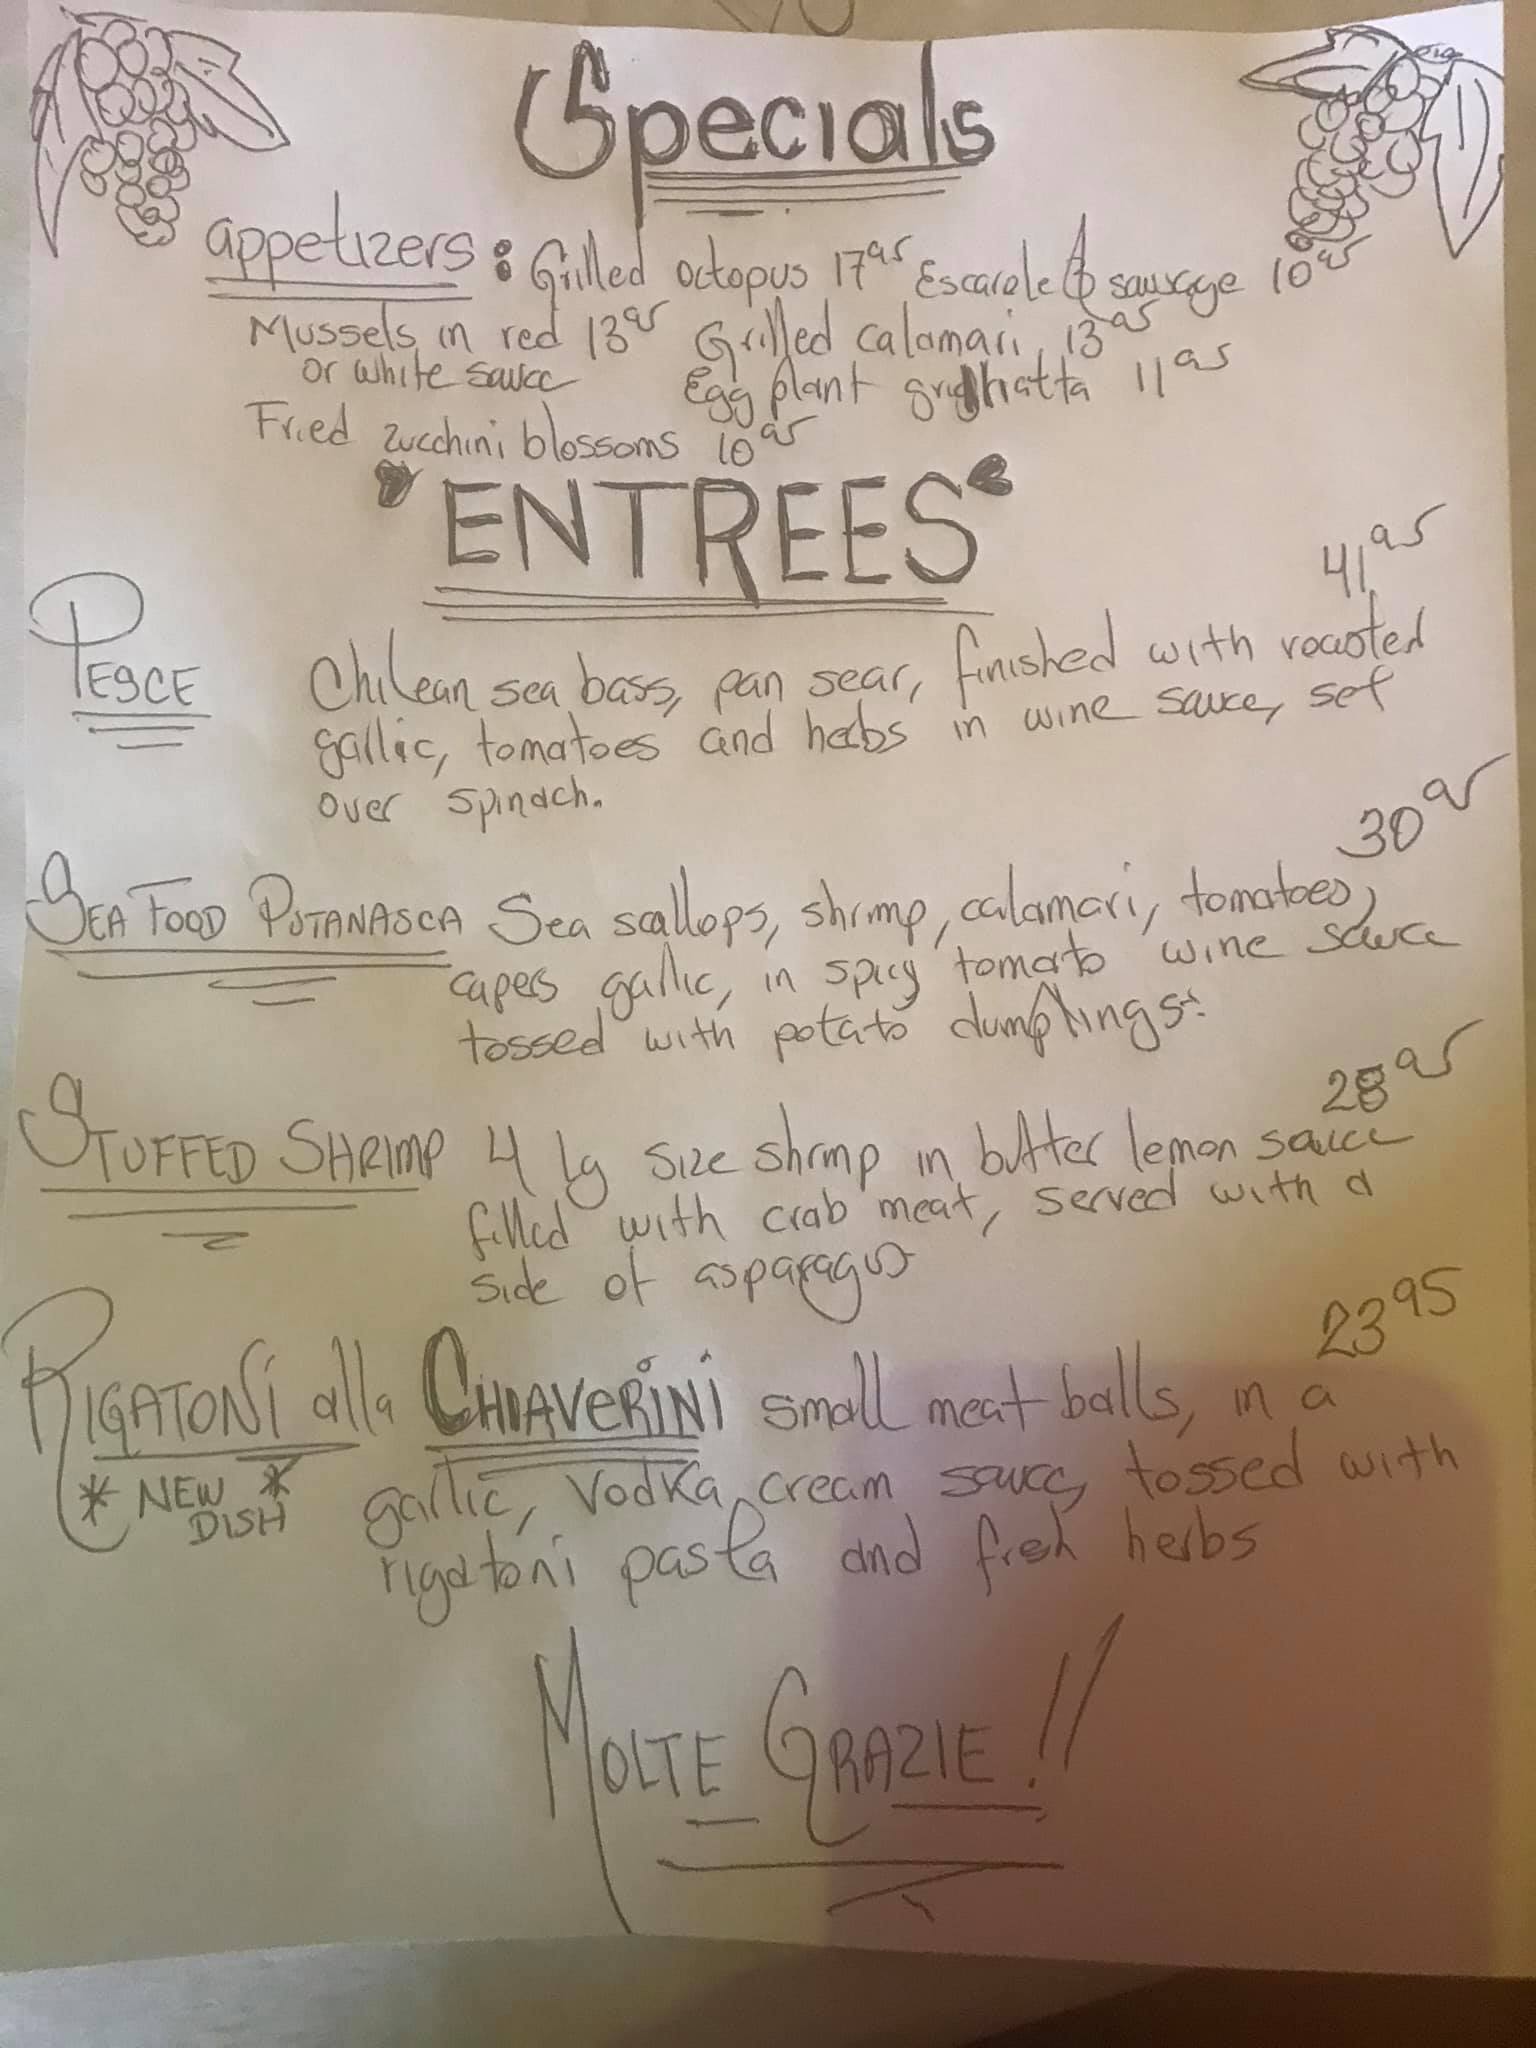 Specials
appetizers: Grilled octopus 17 95 Escarole & sausage 10 95
Mussels in red 13 95 Grilled calamari 13 95
or white sauce Egg plant 11 95
Fried zucchini blossoms 10 95
ENTREES
41 95
PESCE Chilean sea bass, pan sear, finished with roasted
garlic, tomatoes and herbs in wine sauce, set
over spinach.
30 95
SEA FOOD PUTANASCA Sea scallops, shrimp, calamari, tomatoes,
capers garlic, in spicy tomato wine sauce
tossed with potato dumplings.
28 95
STUFFED SHRIMP 4 lg size shrimp in butter lemon sauce
filled with crab meat, served with a
side of asparagus
23 95
RIGATONI alla CHIAVERINI small meat balls, in a
* NEW DISH * garlic, vodka cream sauce, tossed with
rigatoni pasta and fresh herbs
MOLTE GRAZIE!!